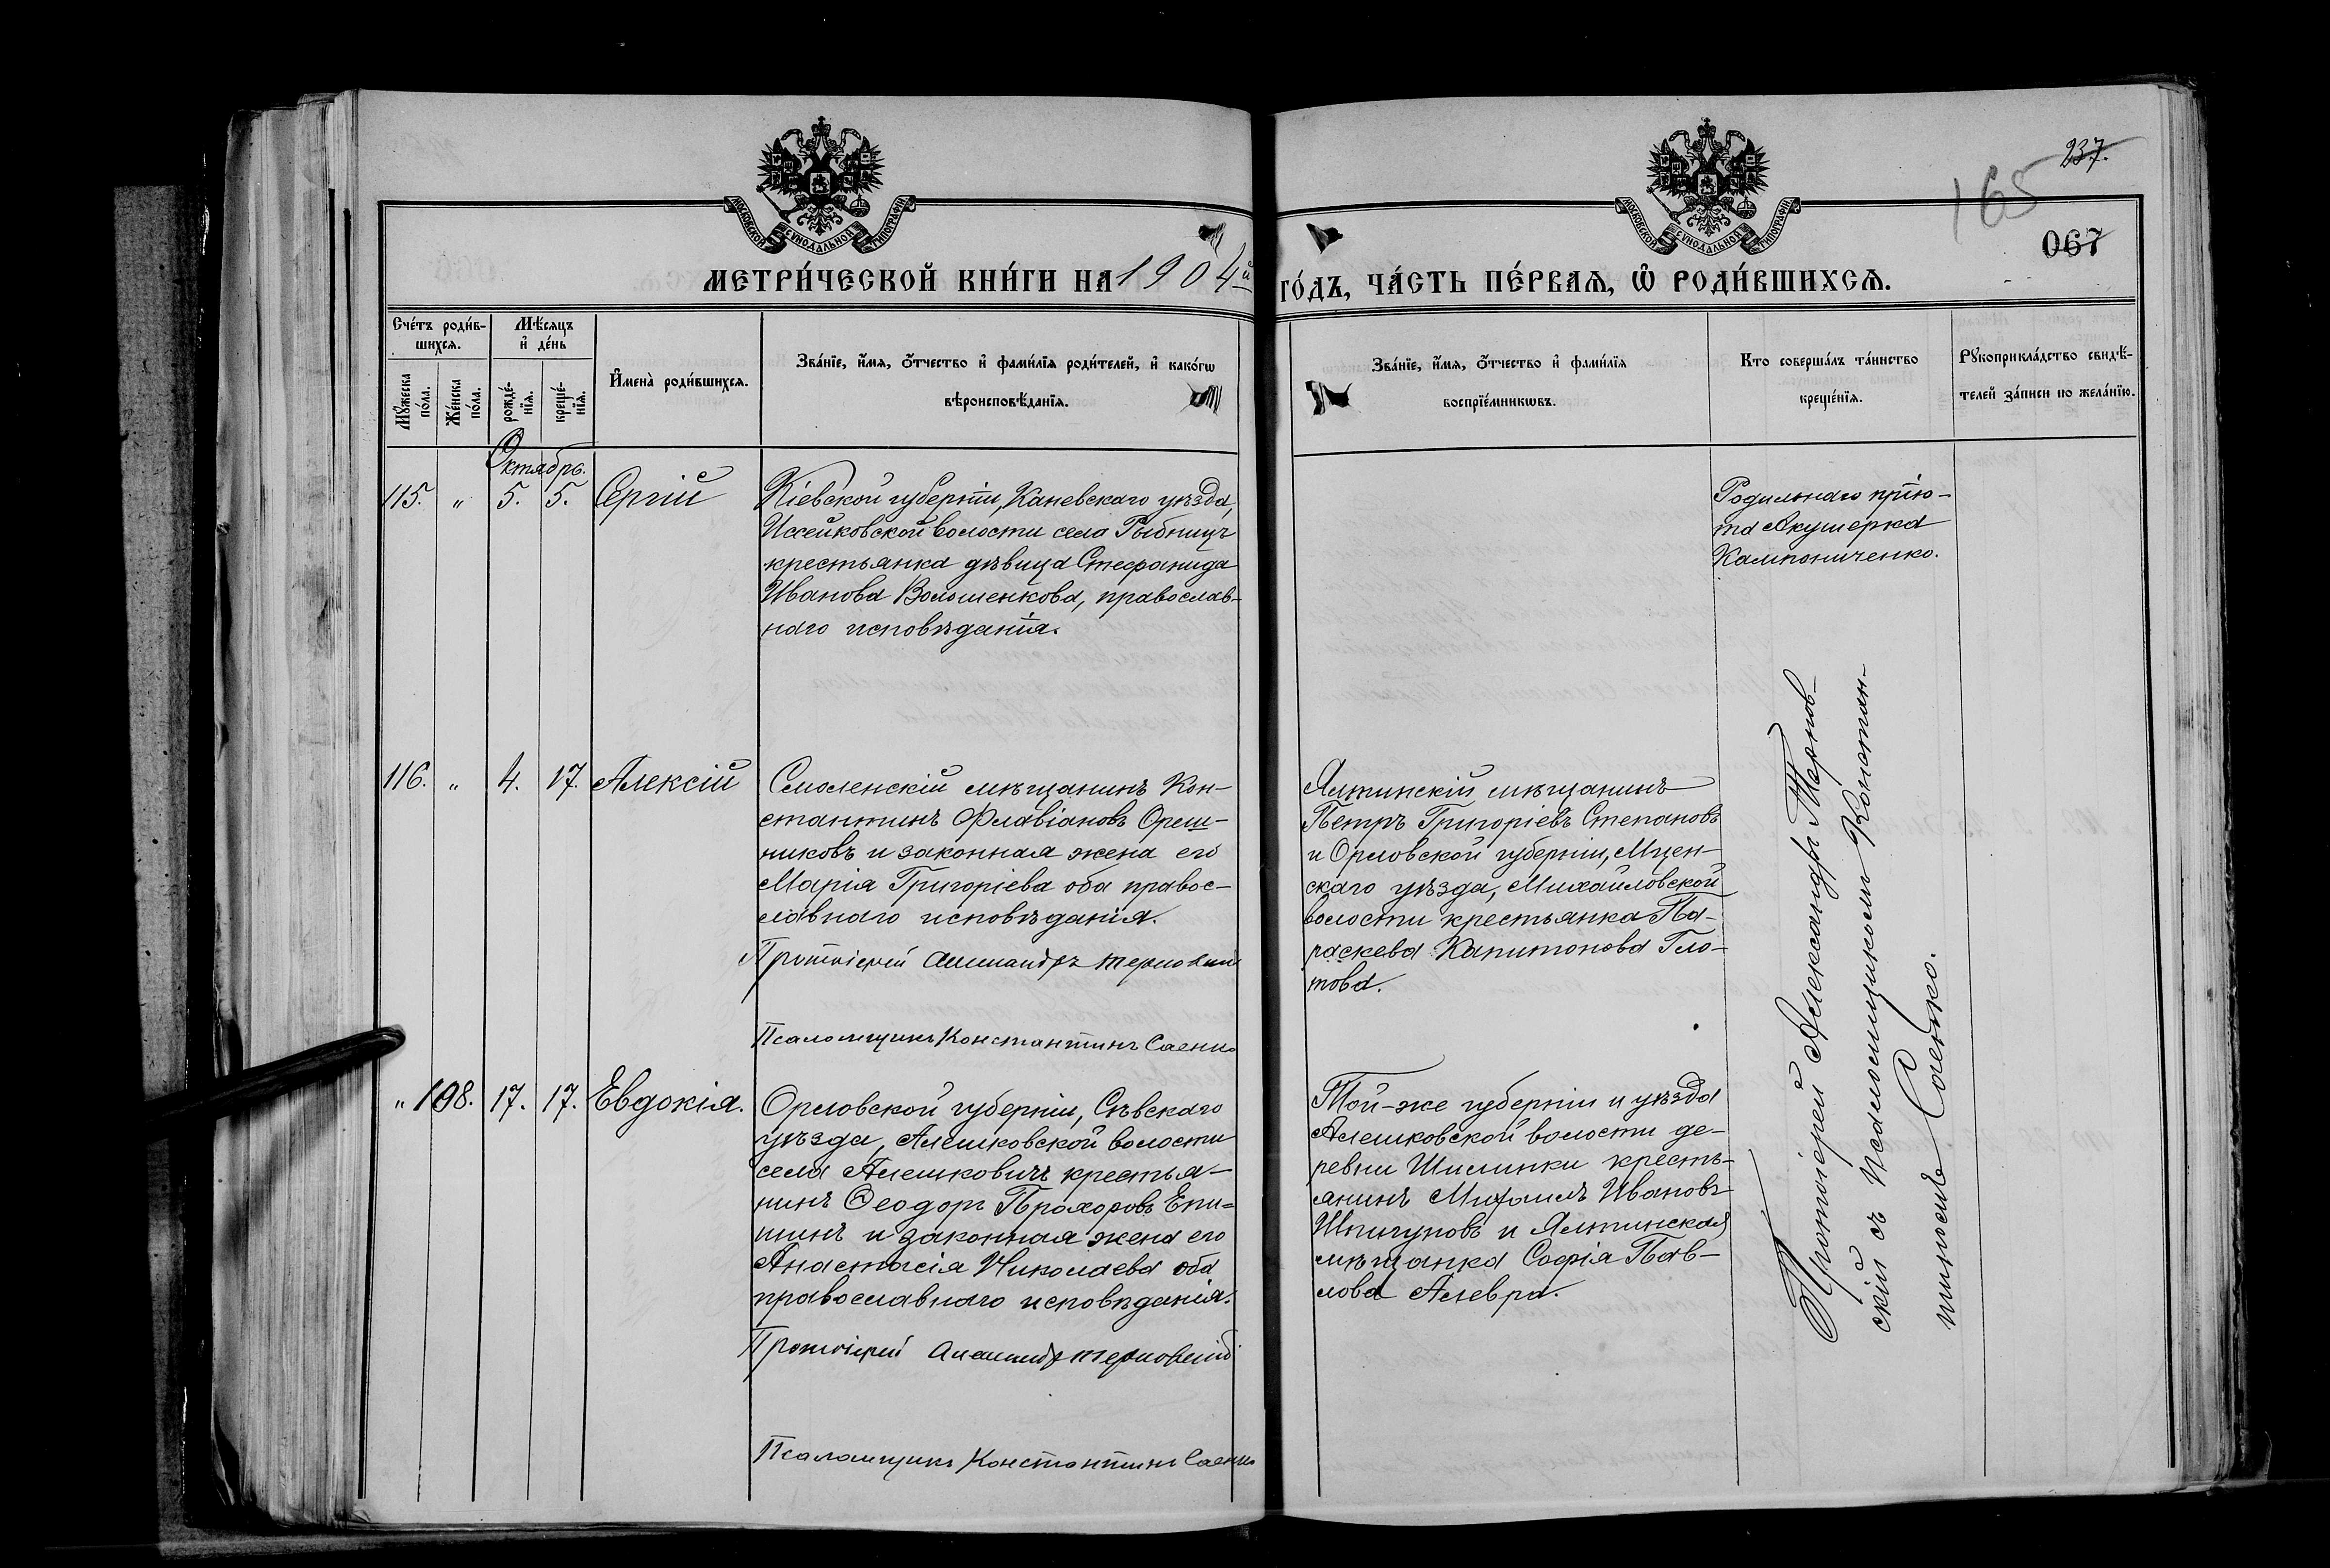 237.
165
067
МОСКОВСКОЙ СѴНОДАЛЬНОЙ ТИПОГРАФІИ
МОСКОВСКОЙ СѴНОДАЛЬНОЙ ТИПОГРАФІИ
МЕТРИ́ЧЕСКОЙ КНИ́ГИ НА 1904й
ГО́ДЪ, ЧА́СТЬ ПЕ́РВАѦ, Ѡ҆ РОДИ́ВШИХСѦ.
Сче́тъ роди́в-
шихсѧ.
Мѣ́сѧцъ
и҆ де́нь
Мꙋ́жеска
по́ла.
Же́нска
по́ла.
рожде́-
нїѧ.
креще́-
нїѧ.
И҆мена̀ роди́вшихсѧ.
Зва́нїе, и҆́мѧ, ѻ҆́тчество и҆ фами́лїѧ роди́телей, и҆ како́гѡ
вѣроисповѣ́данїѧ.
Зва́нїе, и҆́мѧ, ѻ҆́тчество и҆ фами́лїѧ
воспрїе́мникѡвъ.
Кто соверша́лъ та́инство
креще́нїѧ.
Рꙋкоприкла́дство свидѣ́-
телей за́писи по жела́нїю.
Октябрь.
115. " 5. 5. Сергій
Кіевской губерніи, Каневскаго уѣзда,
волости села
крестьянка дѣвица Стефанида
Иванова Волошенкова, православ-
наго исповѣданія.
Родильнаго прію-
та Акушерка
Кампониченко.
116. " 4. 17. Алексій
Смоленскій мѣщанинъ Кон-
стантинъ Флавіановъ Ореш-
никовъ и законная жена его
Марія Григоріева оба правос-
лавнаго исповѣданія.
Протоіерей Александръ Терновскій
Псаломщикъ Константинъ Саенко
Ялтинскій мѣщанинъ
Петръ Григоріевъ Степановъ
и Орловской губерніи, Мцен-
скаго уѣзда, Михайловской
волости крестьянка Па-
раскева Капитонова Гло-
това.
" 108. 17. 17. Евдокія.
Орловской губерніи, Сѣвскаго
уѣзда, Алешковской волости
села Алешковичъ крестья-
нинъ Ѳеодоръ Прохоровъ Епи-
шинъ и законная жена его
Анастасія Николаева оба
православнаго исповѣданія.
Протоіерей Александръ Терновскій
Псаломщикъ Константинъ Саенко
Той-же губерніи и уѣзда
Алешковской волости де-
ревни Шилинки кресть-
янинъ Михаилъ Ивановъ
Шпигуновъ и Ялтинская
мѣщанка Софія Пав-
лова Алевра.
Протоіерей Александръ Тернов-
скій съ Псаломщикомъ Констан-
тиномъ Саенко.